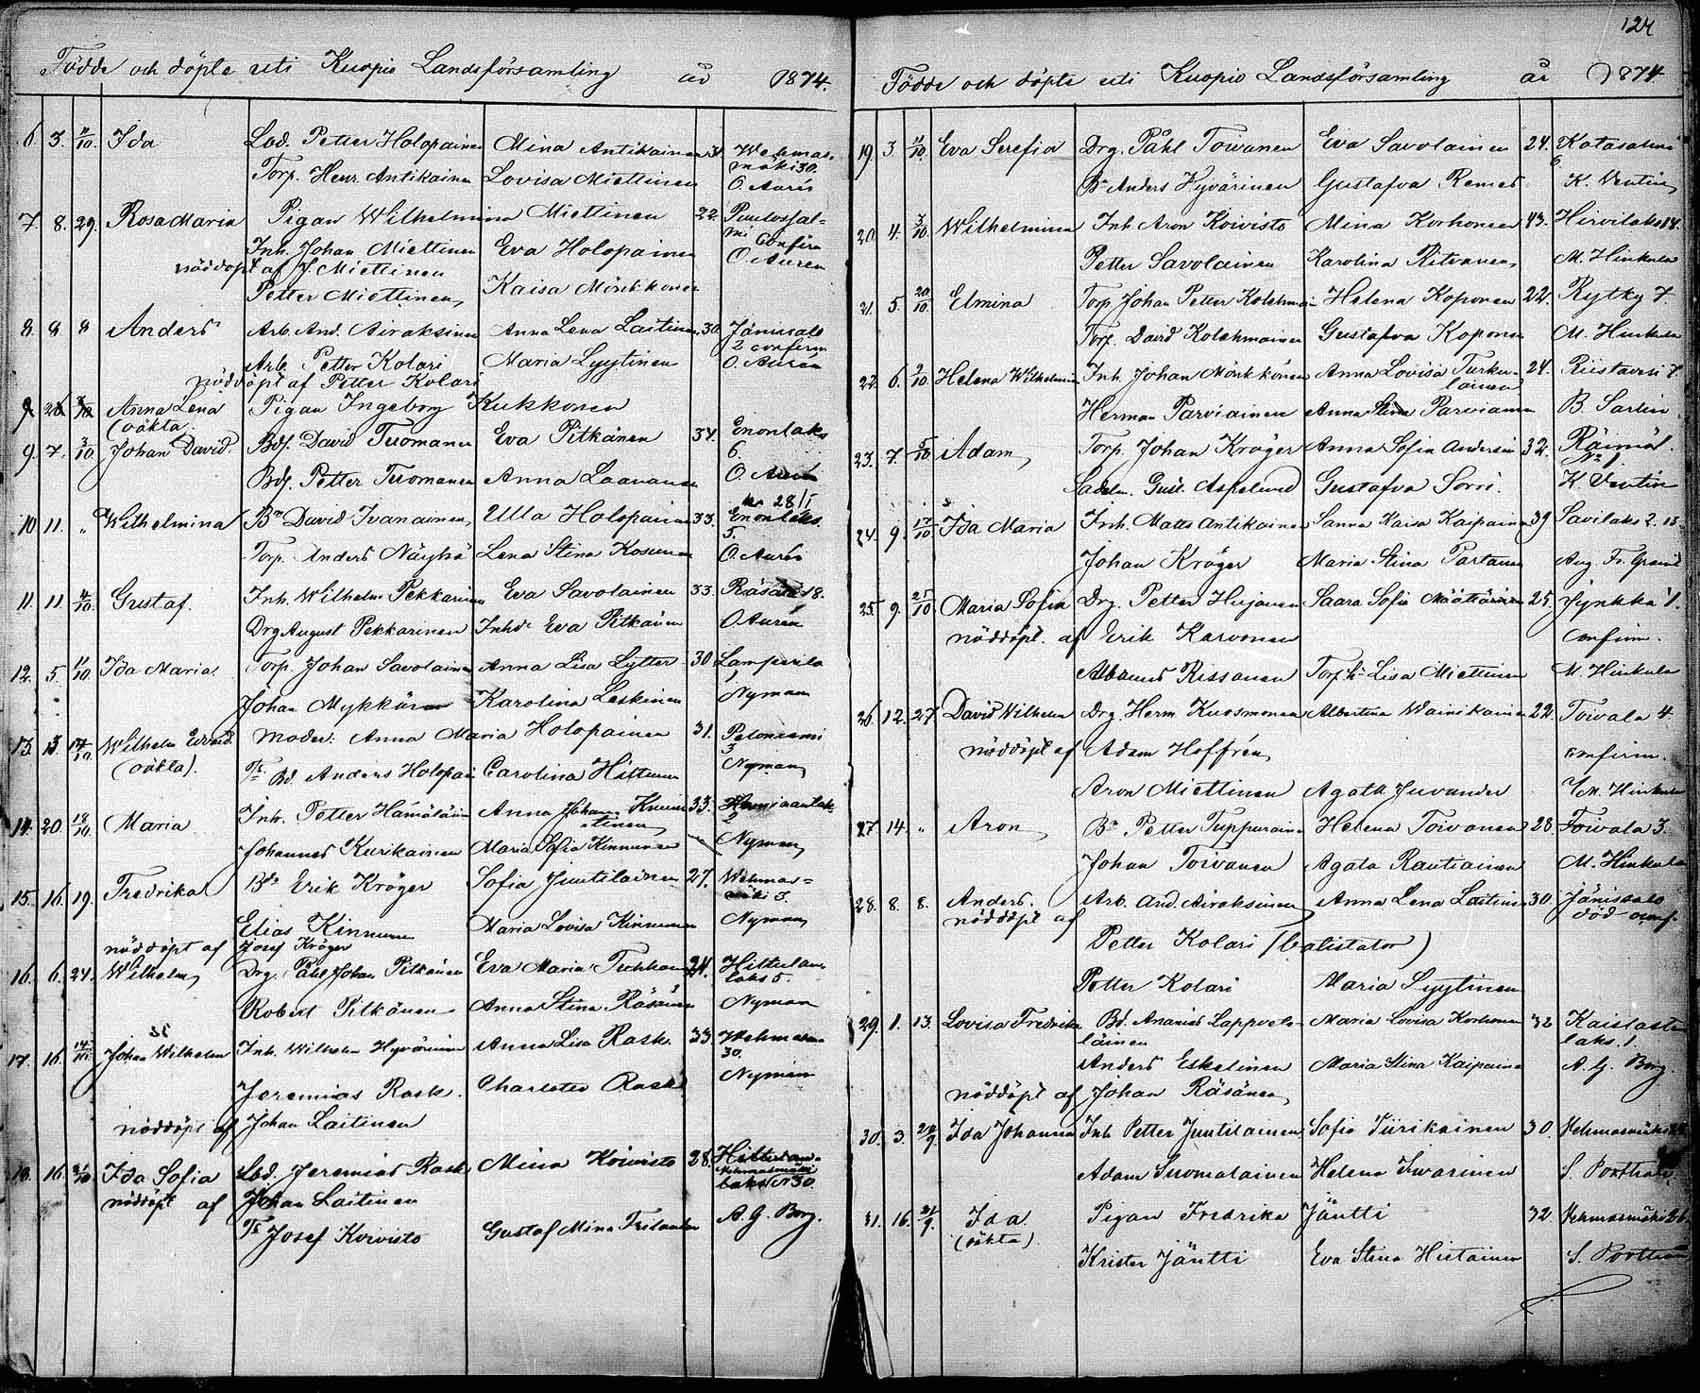 124
Födde och döpte uti Kuopio Landsförsamling år 1874.
6 3. 4/10. Ida Lod. Petter Holopainen Mina Antikainen Wehmas-
mäki 30.
Torp. Henr. Antikainen Lovisa Miettinen O. Aurén
7. 8. 29. Rosa Maria Pigan Wilhelmina Miettinen 22.
Inh. Johan Miettinen Eva Holopainen confirm
nöddöpt af J. Miettinen O. Aurén
Petter Miettinen Kaisa Mönkkönen
8. 8 8 Anders Arb. And. Airaksinen Anna Lena Laitinen 30. Jänissalo
2 confirm
Arb. Petter Kolari Maria Lyytinen O. Aurén
nöddöpt af Petter Kolari
Anna Lena Pigan Ingeborg Kukkonen
(oäkta)
9. 7. 3/10. Johan David. Bdf. David Tuomainen Eva Pitkänen 34. Enonlaks
6.
Bdf. Petter Tuomainen Anna Laavanen O. Aurén
10 11. " Wilhelmina Bn David Ivanainen Ulla Holopainen 33. Enonlaks
5.
Torp. Anders Näyhö Lena Stina Kosunen O. Aurén
11. 11. 4/10. Gustaf. Inh. Wilhelm Pekkarinen Eva Savolainen 33. Räsälä 18.
Drg August Pekkarinen Inhds Eva Pitkänen O. Aurén
12. 5. 11/10. Ida Maria. Torp. Johan Savolainen Anna Lisa Lytter 30 Lamperila
Johan Mykkänen Karolina Leskinen Nyman
13. 13. 14/10. Wilhelm Edvard. Moder: Anna Maria Holopainen 31. Petoniemi
3
(oäkta). Bd. Anders Holopain Carolina Hiltunen Nyman
14. 20. 18/10. Maria Inh. Petter Hämäläin Anna Johanna 33.
2
Johannes Kurikainen Maria Sofia Kinnunen Nyman
15. 16. 19. Fredrika Bds Erik Kröger Sofia Juutilainen 27. Wehmas=
mäki 5.
Elias Kinnunen Maria Lovisa Kinnunen Nyman
nöddöpt af Josef Kröger
16. 6. 24. Wilhelm Drg. Påhl Johan Pitkänen Eva Maria 24. Hiltulan-
laks 5.
Robert Pitkänen Anna Stina Räsänen Nyman
17. 16. Johan Wilhelm Inh. Wilhelm Hyvärinen Anna Lisa Rask. 33. Wehmasm
30.
Jeremias Rask. Charlotta Rask Nyman
nöddöpt af Johan Laitinen
18. 16. Ida Sofia Lod. Jeremias Rask Mina Koivisto 28. Wehmasmäki
nöddöpt af Johan Laitinen 30.
Josef Koivisto Gustaf Mina A. G. Borg.
Födde och döpte uti Kuopio Landsförsamling år 1874
19. 3 4/10. Eva Serefia Drg. Påhl Toivanen Eva Savolainen 24. Kotasalmi
6
Bn Anders Hyvärinen Gustafva Remes K. Wentin
20. 4. 3/10. Wilhelmina Inh Aron Koivisto Mina Korhonen 43. Hirvilaks 14.
Petter Savolainen Karolina Ritvanen M. Hinkula
21. 5. 20/10. Elmina Torp. Johan Petter Kolehmai- Helena Koponen 22. Rytky 7.
Torp. David Kolehmainen Gustafva Koponen M. Hinkula
22. 6. 2/10. Helena Wilhelmina Inh. Johan Mönkkönen Anna Lovisa Turku- 24. Riistavesi 7.
lainen
Herman Parviainen Anna Stina Parviainen B. Sarlin
23. 7. 5/10 Adam Torp. Johan Kröger Anna Sofia Andersin 32. Räimä
No 1
Gust. Aspelund Gustafva Sorri. K. Wentin
24. 9. 17/10. Ida Maria Inh. Matts Antikainen Sanna Kaisa Kaipainen 39 Savilaks 2.
Johan Kröger Maria Stina Partanen Aug. Fr. Granit
25. 9. 25/10 Maria Sofia Drg. Petter Hujanen Saara Sofia Määttäinen 25. Jynkkä 1.
nöddöpt. af Erik Karvonen confirm.
Albanus Rissanen Torp.h Lisa Miettinen M. Hinkula
26. 12. 27 David Wilhelm Drg. Herm Kuosmonen Albertina Wainikainen 22. Toivala 4.
nöddöpt af Adam Hoffrén confirm.
Aron Miettinen Agatha Juvander M. Hinkula
27 14. " Aron Bn Petter Tuppurain Helena Toivanen 28. Toivala 3.
Johan Toivanen Agata Rautiainen M. Hinkula
28. 8. 8. Anders. Arb. And. Airaksinen Anna Lena Laitinen 30. Jänissalo
nöddöpt af död
Petter Kolari (batistator)
Petter Kolari Maria Lyytinen
29. 1. 13. Lovisa Fredrika Bd. Ananias Lappvete- Maria Lovisa Korhonen 32 Kaislasten
läinen laks. 1.
Anders Eskelinen Maria Stina Kaipainen A. G. Borg.
nöddöpt af Johan Räsänen
30. 3. 24/9. Ida Johanna Inh Petter Juutilainen Sofia Tiirikainen 30. Vehmasmäki
Adam Suomalainen Helena Iwarinen S. Porthan
31. 16. 21/9. Ida Pigan Fredrika Jäntti 32 Vehmasmäki 26.
(oäkta)
Krister Jäntti Eva Stina Hietainen S. Porthan